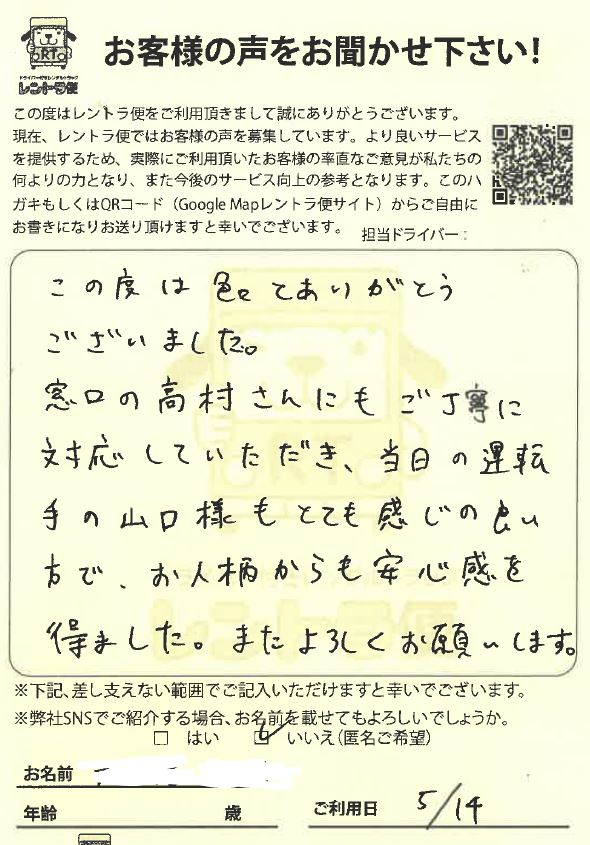 RT
ドライバー付きレンタルトラック
レントラ便
お客様の声をお聞かせ下さい!
この度はレントラ便をご利用頂きまして誠にありがとうございます。
現在、レントラ便ではお客様の声を募集しています。より良いサービス
を提供するため、実際にご利用頂いたお客様の率直なご意見が私たちの
何よりの力となり、また今後のサービス向上の参考となります。このハ
ガキもしくはQRコード（Google Mapレントラ便サイト）からご自由に
お書きになりお送り頂けますと幸いでございます。
担当ドライバー:
この度は色々とありがとう
ございました。
窓口の高村さんにもご丁寧に
対応していただき、当日の運転
手の山口様もとても感じの良い
方で、お人柄からも安心感を
得ました。またよろしくお願いします。
RT
レントラ便
※下記、差し支えない範囲でご記入いただけますと幸いでございます。
※弊社SNSでご紹介する場合、お名前を載せてもよろしいでしょうか。
□ はい ☑ いいえ(匿名ご希望)
お名前
年齢 歳 ご利用日 5/14